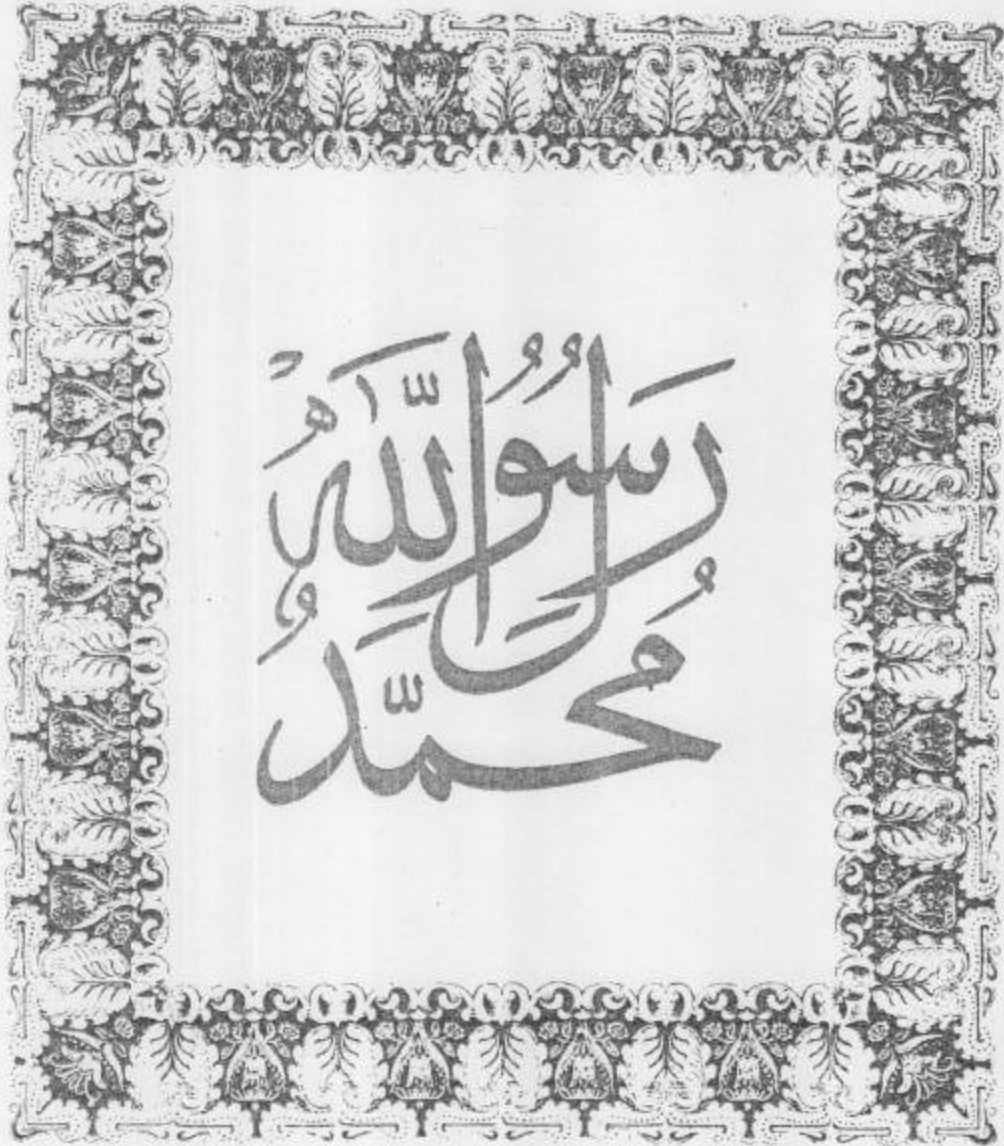 مُحَمَّدٌ
رَسُوْلُ اللّٰهِ